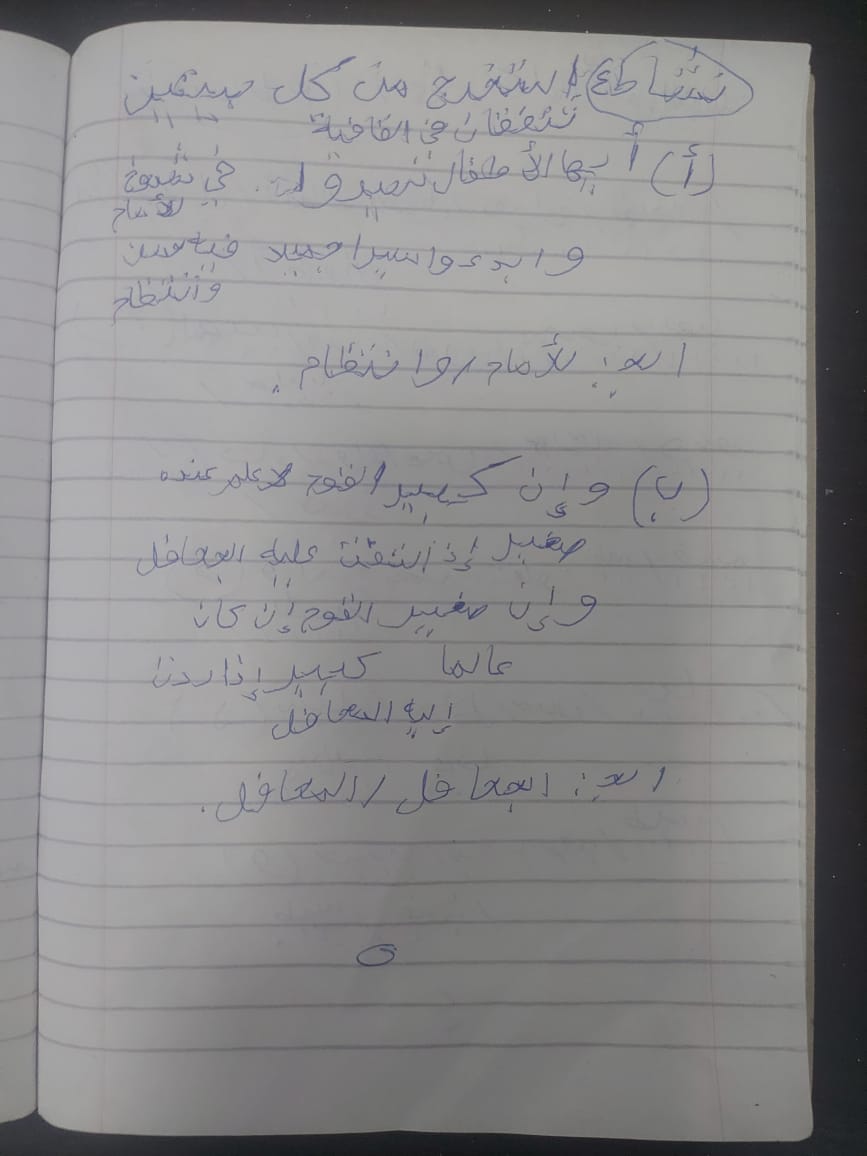 نشاط ٤ استخرج من كل بيتين
تتفقان في القافية
(أ) أيها الأطفال سيروا .. في شموخ
للأمام
وابدءوا سيرا جميلا فيه حسن
وانتظام
الج: للأمام / وانتظام .
(ب) وإن كبير القوم لا علم عنده
صغير إذ التفت عليه الجحافل
وإن صغير القوم إن كان
عالما كبير إذا ردت
إليه المحافل
الج: الجحافل / المحافل .